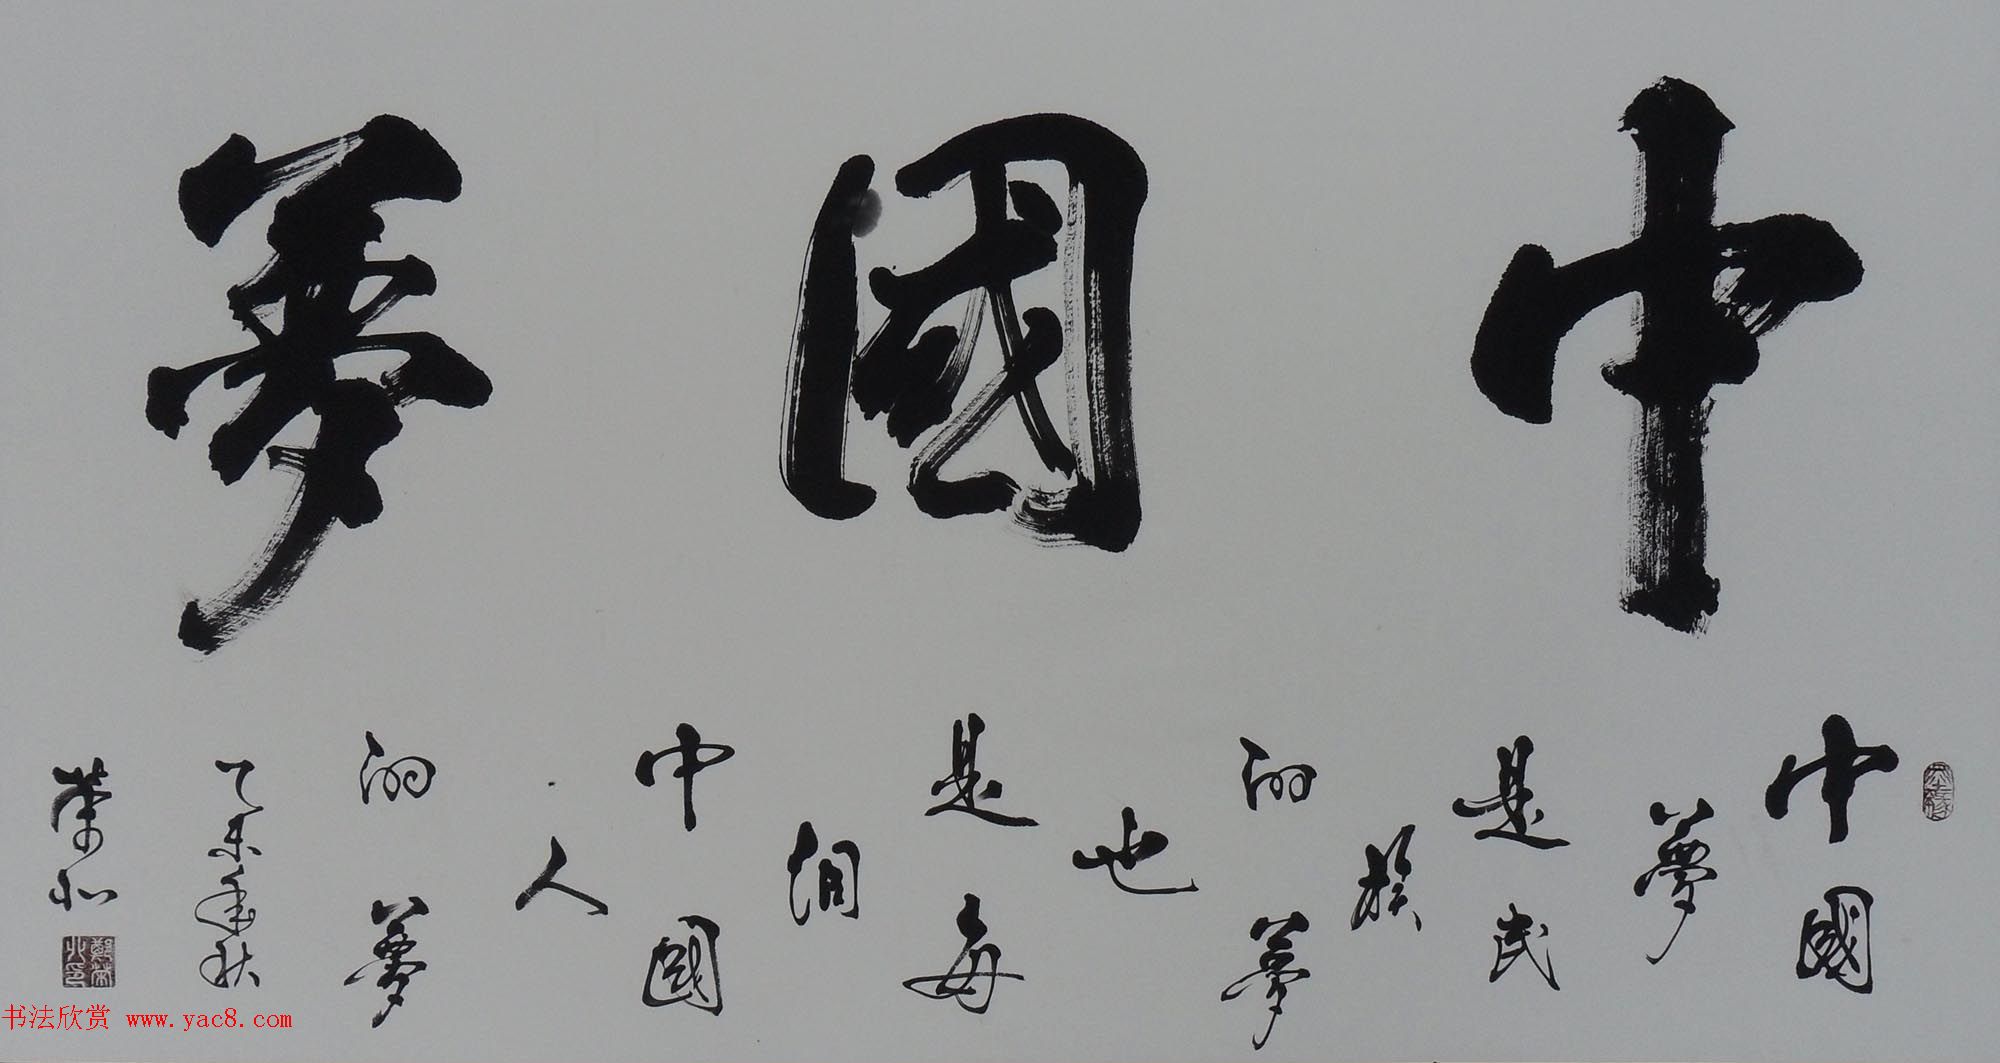 中國夢
中國
夢
是民
族
的夢
也
是每
個
中國
人
的夢
乙未年秋
榮北
书法欣赏 www.yac8.com